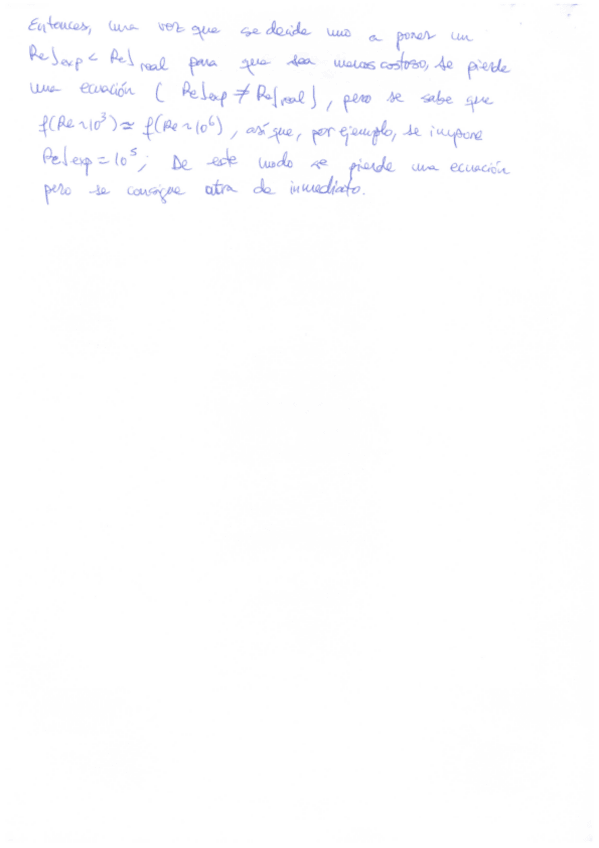 Entonces, una vez que se decide uno a poner un
Re]exp < Re]real para que sea menos costoso, se pierde
una ecuación ( Re]exp ≠ Re]real ), pero se sabe que
f(Re~10³) ≃ f(Re~10⁶), así que, por ejemplo, se impone
Re]exp = 10⁵; De este modo se pierde una ecuación
pero se consigue otra de inmediato.